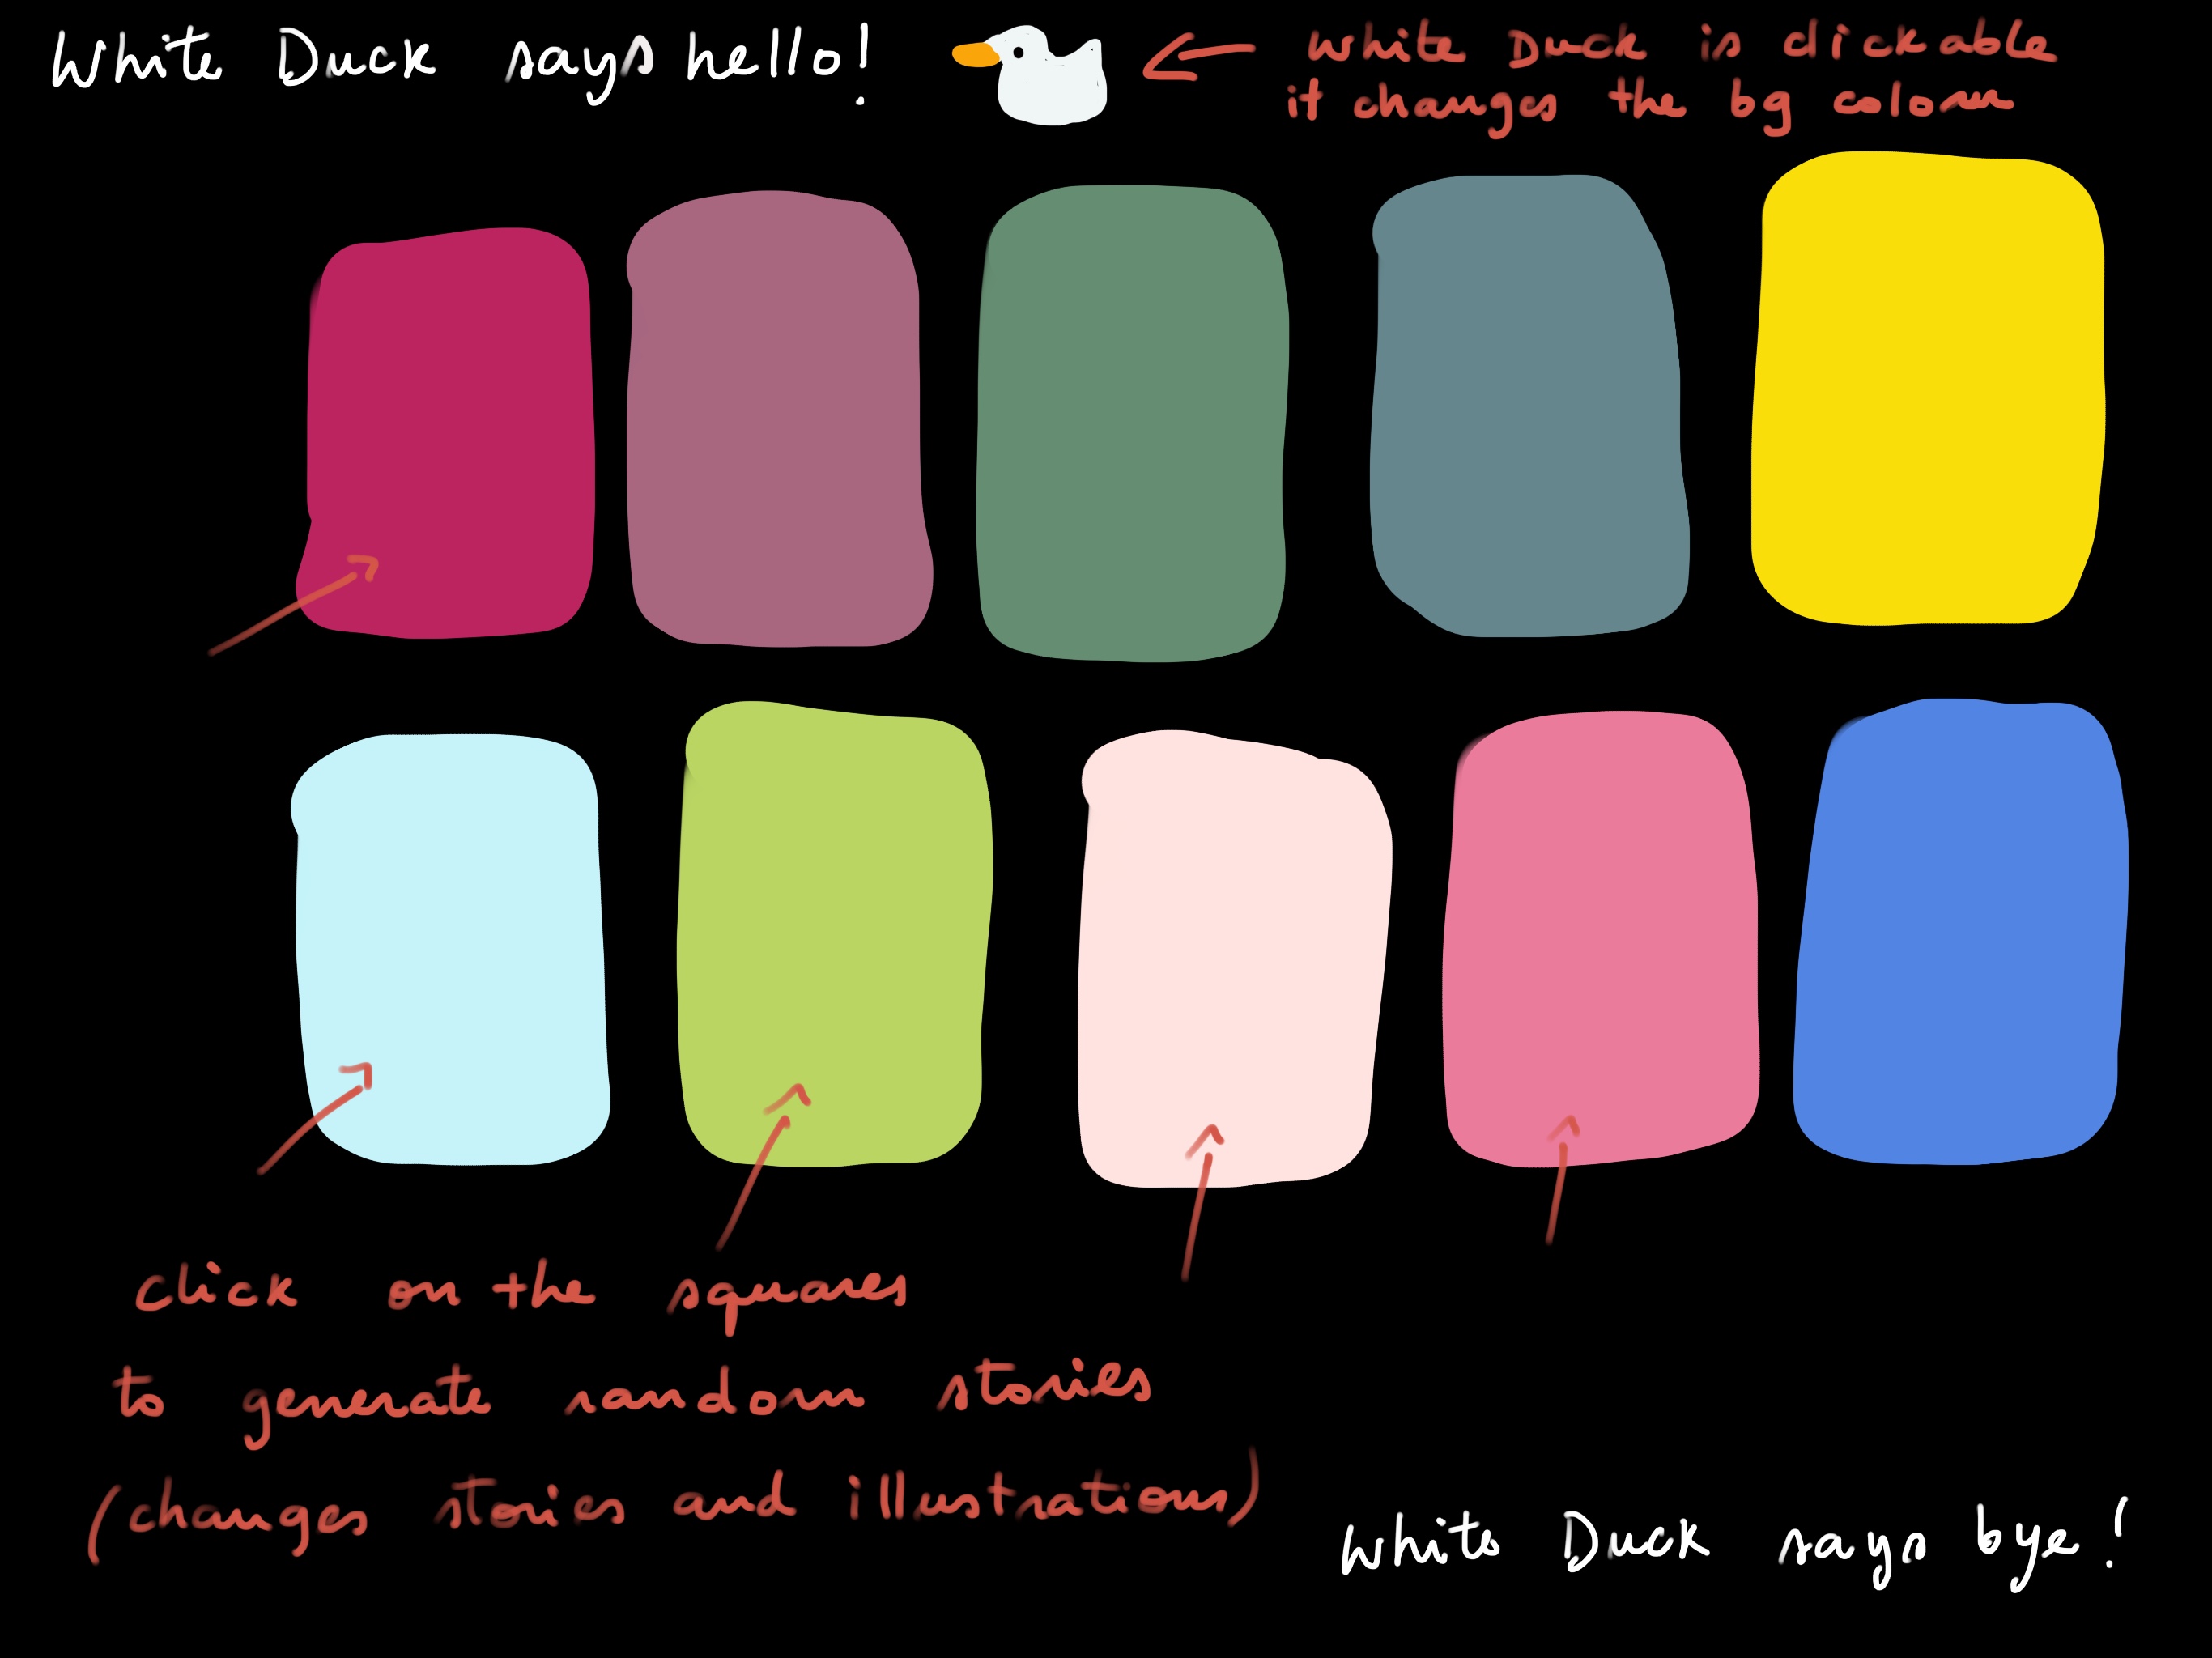 White Duck says hello!
White Duck is clickable
it changes the bg colour
Click on the squares
to generate random stories
(changes stories and illustrations)
White Duck says bye!